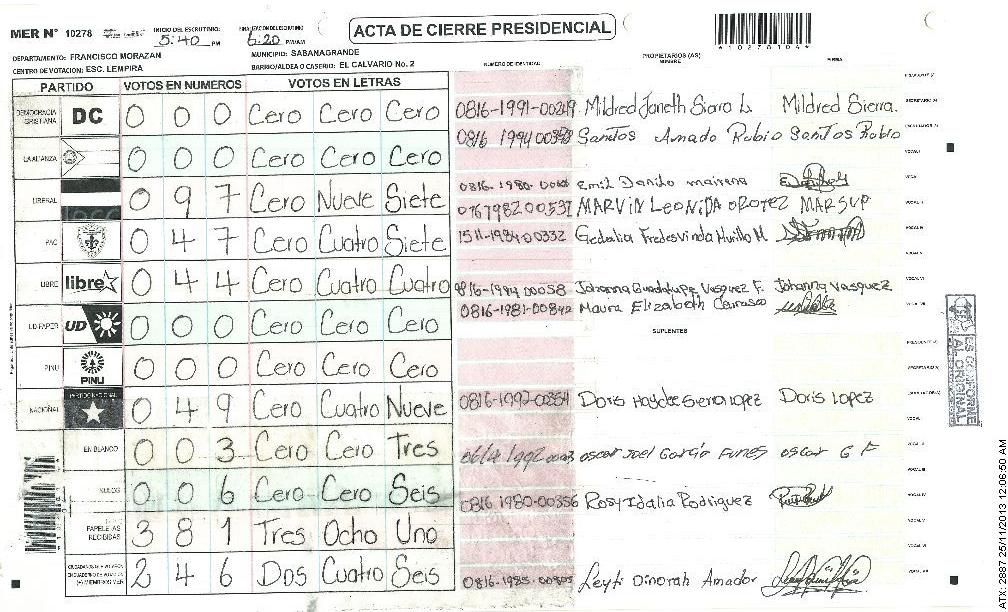 MER N° 10278 INICIO DEL ESCRUTINIO: 5:40 PM FINALIZACION DEL ESCRUTINIO 6:20 PM/AM ACTA DE CIERRE PRESIDENCIAL
*10278104*
DEPARTAMENTO: FRANCISCO MORAZAN MUNICIPIO: SABANAGRANDE
CENTRO DE VOTACION: ESC. LEMPIRA BARRIO/ALDEA O CASERIO: EL CALVARIO No. 2
NÚMERO DE IDENTIDAD PROPIETARIOS (AS) NOMBRE FIRMA
PARTIDO VOTOS EN NUMEROS VOTOS EN LETRAS
DEMOCRACIA CRISTIANA DC 0 0 0 Cero Cero Cero
LA ALIANZA 0 0 0 Cero Cero Cero
LIBERAL 0 9 7 Cero Nueve Siete
PAC 0 4 7 Cero Cuatro Siete
LIBRE libre 0 4 4 Cero Cuatro Cuatro
UD FAPER UD 0 0 0 Cero Cero Cero
PINU PINU 0 0 0 Cero Cero Cero
NACIONAL PARTIDO NACIONAL 0 4 9 Cero Cuatro Nueve
EN BLANCO 0 0 3 Cero Cero Tres
NULOS 0 0 6 Cero Cero Seis
PAPELETAS RECIBIDAS 3 8 1 Tres Ocho Uno
CIUDADANOS QUE VOTARON EN CUADERNO DE VOTACION (+) MIEMBROS MER 2 4 6 Dos Cuatro Seis
0816-1991-00219 Mildred Janeth Sierra L. Mildred Sierra.
0816 1994 00398 Santos Amado Rubio Santos Rubio
0816-1980- Emil Danilo mairena
0816 1982 00537 MARVIN LEONIDA OROTEZ MARSUP
1511-1984-00332 Gedalia Fredesvinda Murillo M
0816-1994 00058 Johanna Guadalupe Vasquez F. Johanna Vasquez
0816-1981-00842 Maura Elizabeth Carrasco
SUPLENTES
0816-1992-00354 Doris Haydee Sierra Lopez Doris Lopez
1992 oscar Joel García Funes oscar G F
0816 1980-00356 Rosy Idalia Rodriguez
0816-1985-00805 Leyti Dinorah Amador
ES CONFORME AL ORIGINAL
ATX: 2987 25/11/2013 12:06:50 AM